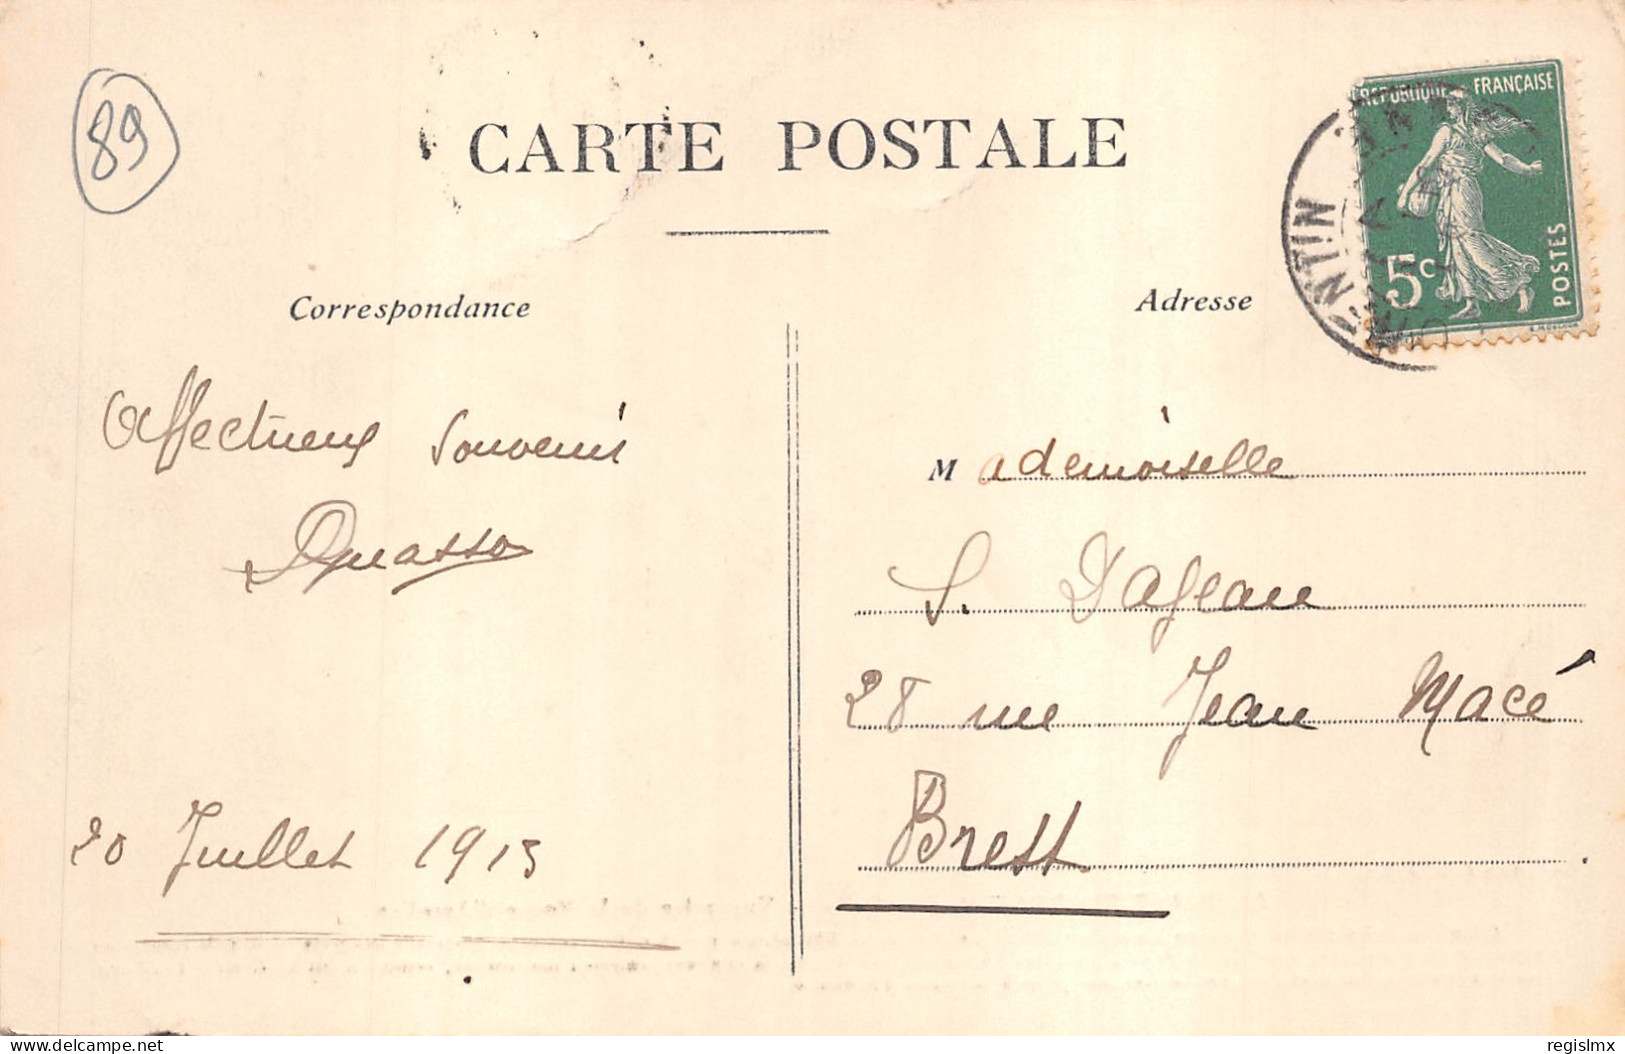 89
CARTE POSTALE
REPUBLIQUE FRANÇAISE
5c
POSTES
Correspondance
Affectueux souvenir
20 Juillet 1913
Adresse
Mademoiselle
S. Dageau
28 rue Jean Macé
Brest
delcampe.net
regislmx